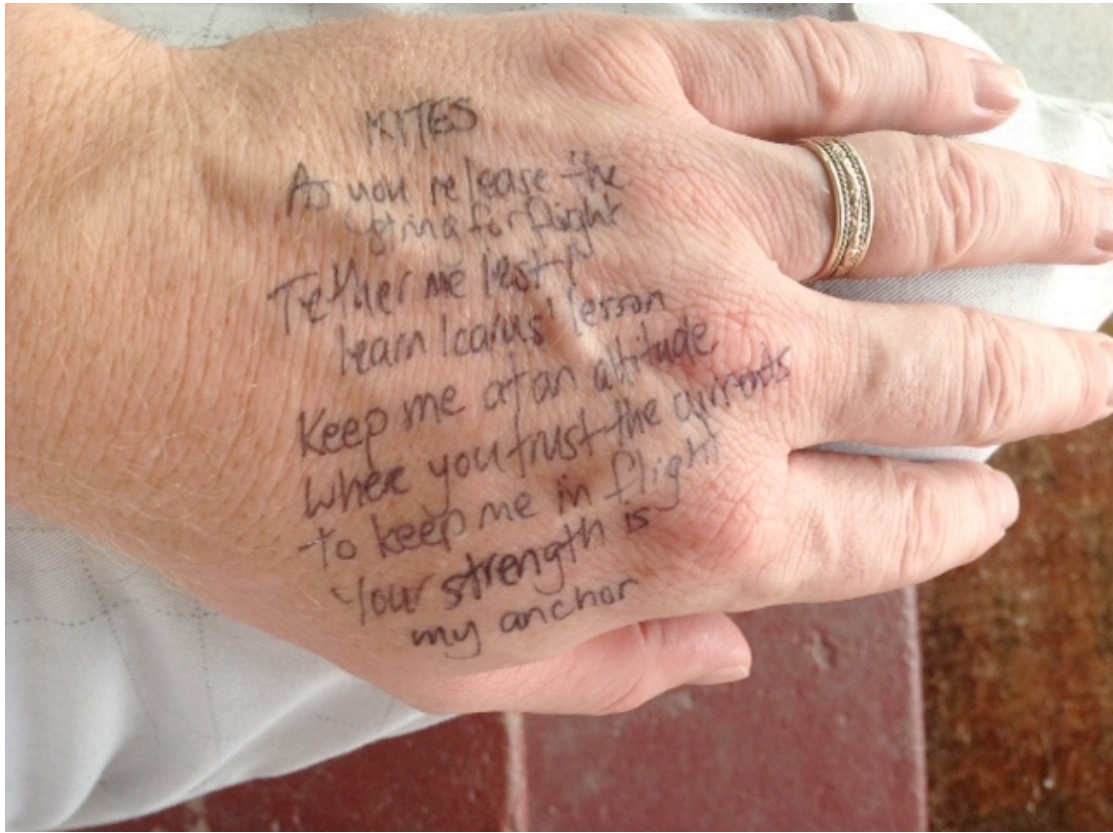 KITES
As you release the
string for flight
Tether me lest I
learn Icarus' lesson
Keep me at an altitude
where you trust the currents
to keep me in flight
Your strength is
my anchor